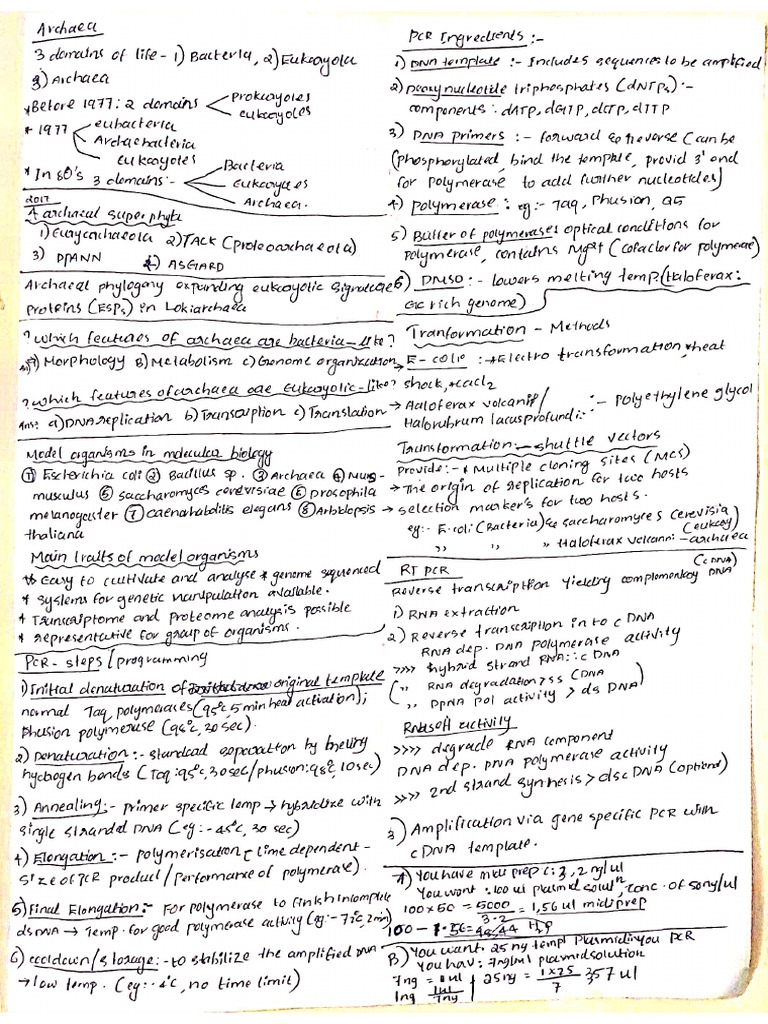 Archaea
3 domains of life - 1) Bacteria, 2) Eukaryota
3) Archaea
* Before 1977: 2 domains < Prokaryotes
eukaryotes
* 1977 < eubacteria
Archaebacteria
eukaryotes
* In 80's 3 domains:- < Bacteria
eukaryotes
Archaea.
2017
4 archaeal superphyla
1) Euryarchaeota 2) TACK (Proteoarchaeota)
3) DPANN 4) ASGARD
Archaeal phylogeny expanding eukaryotic signature
proteins (ESPs) in Lokiarchaea
? which features of archaea are bacteria-like?
A) Morphology B) Metabolism C) Genome organization
? which features of archaea are Eukaryotic-like?
Ans: a) DNA replication b) Transcription c) Translation
Model organisms in molecular biology
① Escherichia coli ② Bacillus sp. ③ Archaea ④ Mus-
musculus ⑤ saccharomyces cerevisiae ⑥ Drosophila
melanogaster ⑦ caenarhabolitis elegans ⑧ Arbidopsis
thaliana
Main traits of model organisms
* Easy to cultivate and analyse * genome sequenced
* Systems for genetic manipulation available.
* Transcriptome and proteome analysis possible
* representative for group of organisms.
PCR - steps / programming
1) Initial denaturation of original template
normal Taq polymerases (95°c, 5 min heat activation);
phusion polymerase (98°c, 30 sec).
2) Denaturation:- standard separation by breaking
hydrogen bonds (Taq: 95°c, 30 sec / phusion: 98°c, 10 sec)
3) Annealing:- primer specific temp → hybridize with
single stranded DNA (eg:- 45°c, 30 sec)
4) Elongation:- polymerisation - time dependent -
size of PCR product / performance of polymerase).
5) Final Elongation:- For polymerase to finish incomplete
dsDNA → Temp. for good polymerase activity (eg:- 72°c, 2min)
6) cooldown/storage:- to stabilize the amplified DNA
→ low temp. (eg:- 4°c, no time limit)
PCR Ingredients:-
1) DNA template:- Includes sequences to be amplified
2) Deoxynucleotide triphosphates (dNTPs):-
components: dATP, dGTP, dCTP, dTTP
3) DNA primers:- forward & Reverse (can be
(phosphorylated, bind the template, provid 3' end
for polymerase to add further nucleotides)
4) polymerase: eg:- Taq, Phusion, Q5
5) Buffer of polymerases optical conditions for
polymerase, contains Mg2+ (cofactor for polymerase)
6) DMSO:- lowers melting temp. (Haloferax:
GC rich genome)
Tranformation - Methods
→ E-coli: → * Electro transformation * heat
shock, * cacl2
→ Haloferax volcanii /
Halorubrum lacusprofundi: :- Polyethylene glycol
Transformation - shuttle vectors
Provide:- * Multiple cloning sites (MCS)
→ The origin of replication for two hosts
→ selection marker's for two hosts.
eg:- E.coli (Bacteria) & saccharomytes cerevisia
(eukary)
" " " Haloferax volcanni - archaea
RT PCR
(cDNA)
Reverse transcription yielding complementary DNA
1) RNA extraction
2) Reverse transcription in to cDNA
RNA dep. DNA polymerase activity
>>>> hybrid strand RNA::cDNA
(" RNA degradation > ss CDNA
" DpNA pol activity > ds DNA)
RNaseH activity
>>>> degrade RNA component
DNA dep. DNA polymerase activity
>>>> 2nd strand synthesis > dsc DNA (optional)
3) Amplification via gene specific PCR with
cDNA template.
A) You have midi prep c: 3,2 ng/ul
You want: 100 ul plasmid solutn, conc. of 50ng/ul
100 x 50 = 5000 / 3.2 = 1,56 ul midiprep
100 - 1.56 = 48,44 H2O
B) You want 25 ng temp plasmid in you PCR
You hav: 7ng/ml plasmid solution
7ng = 1ul
1ng 1ul/7ng | 25ng = 1x25/7 357 ul